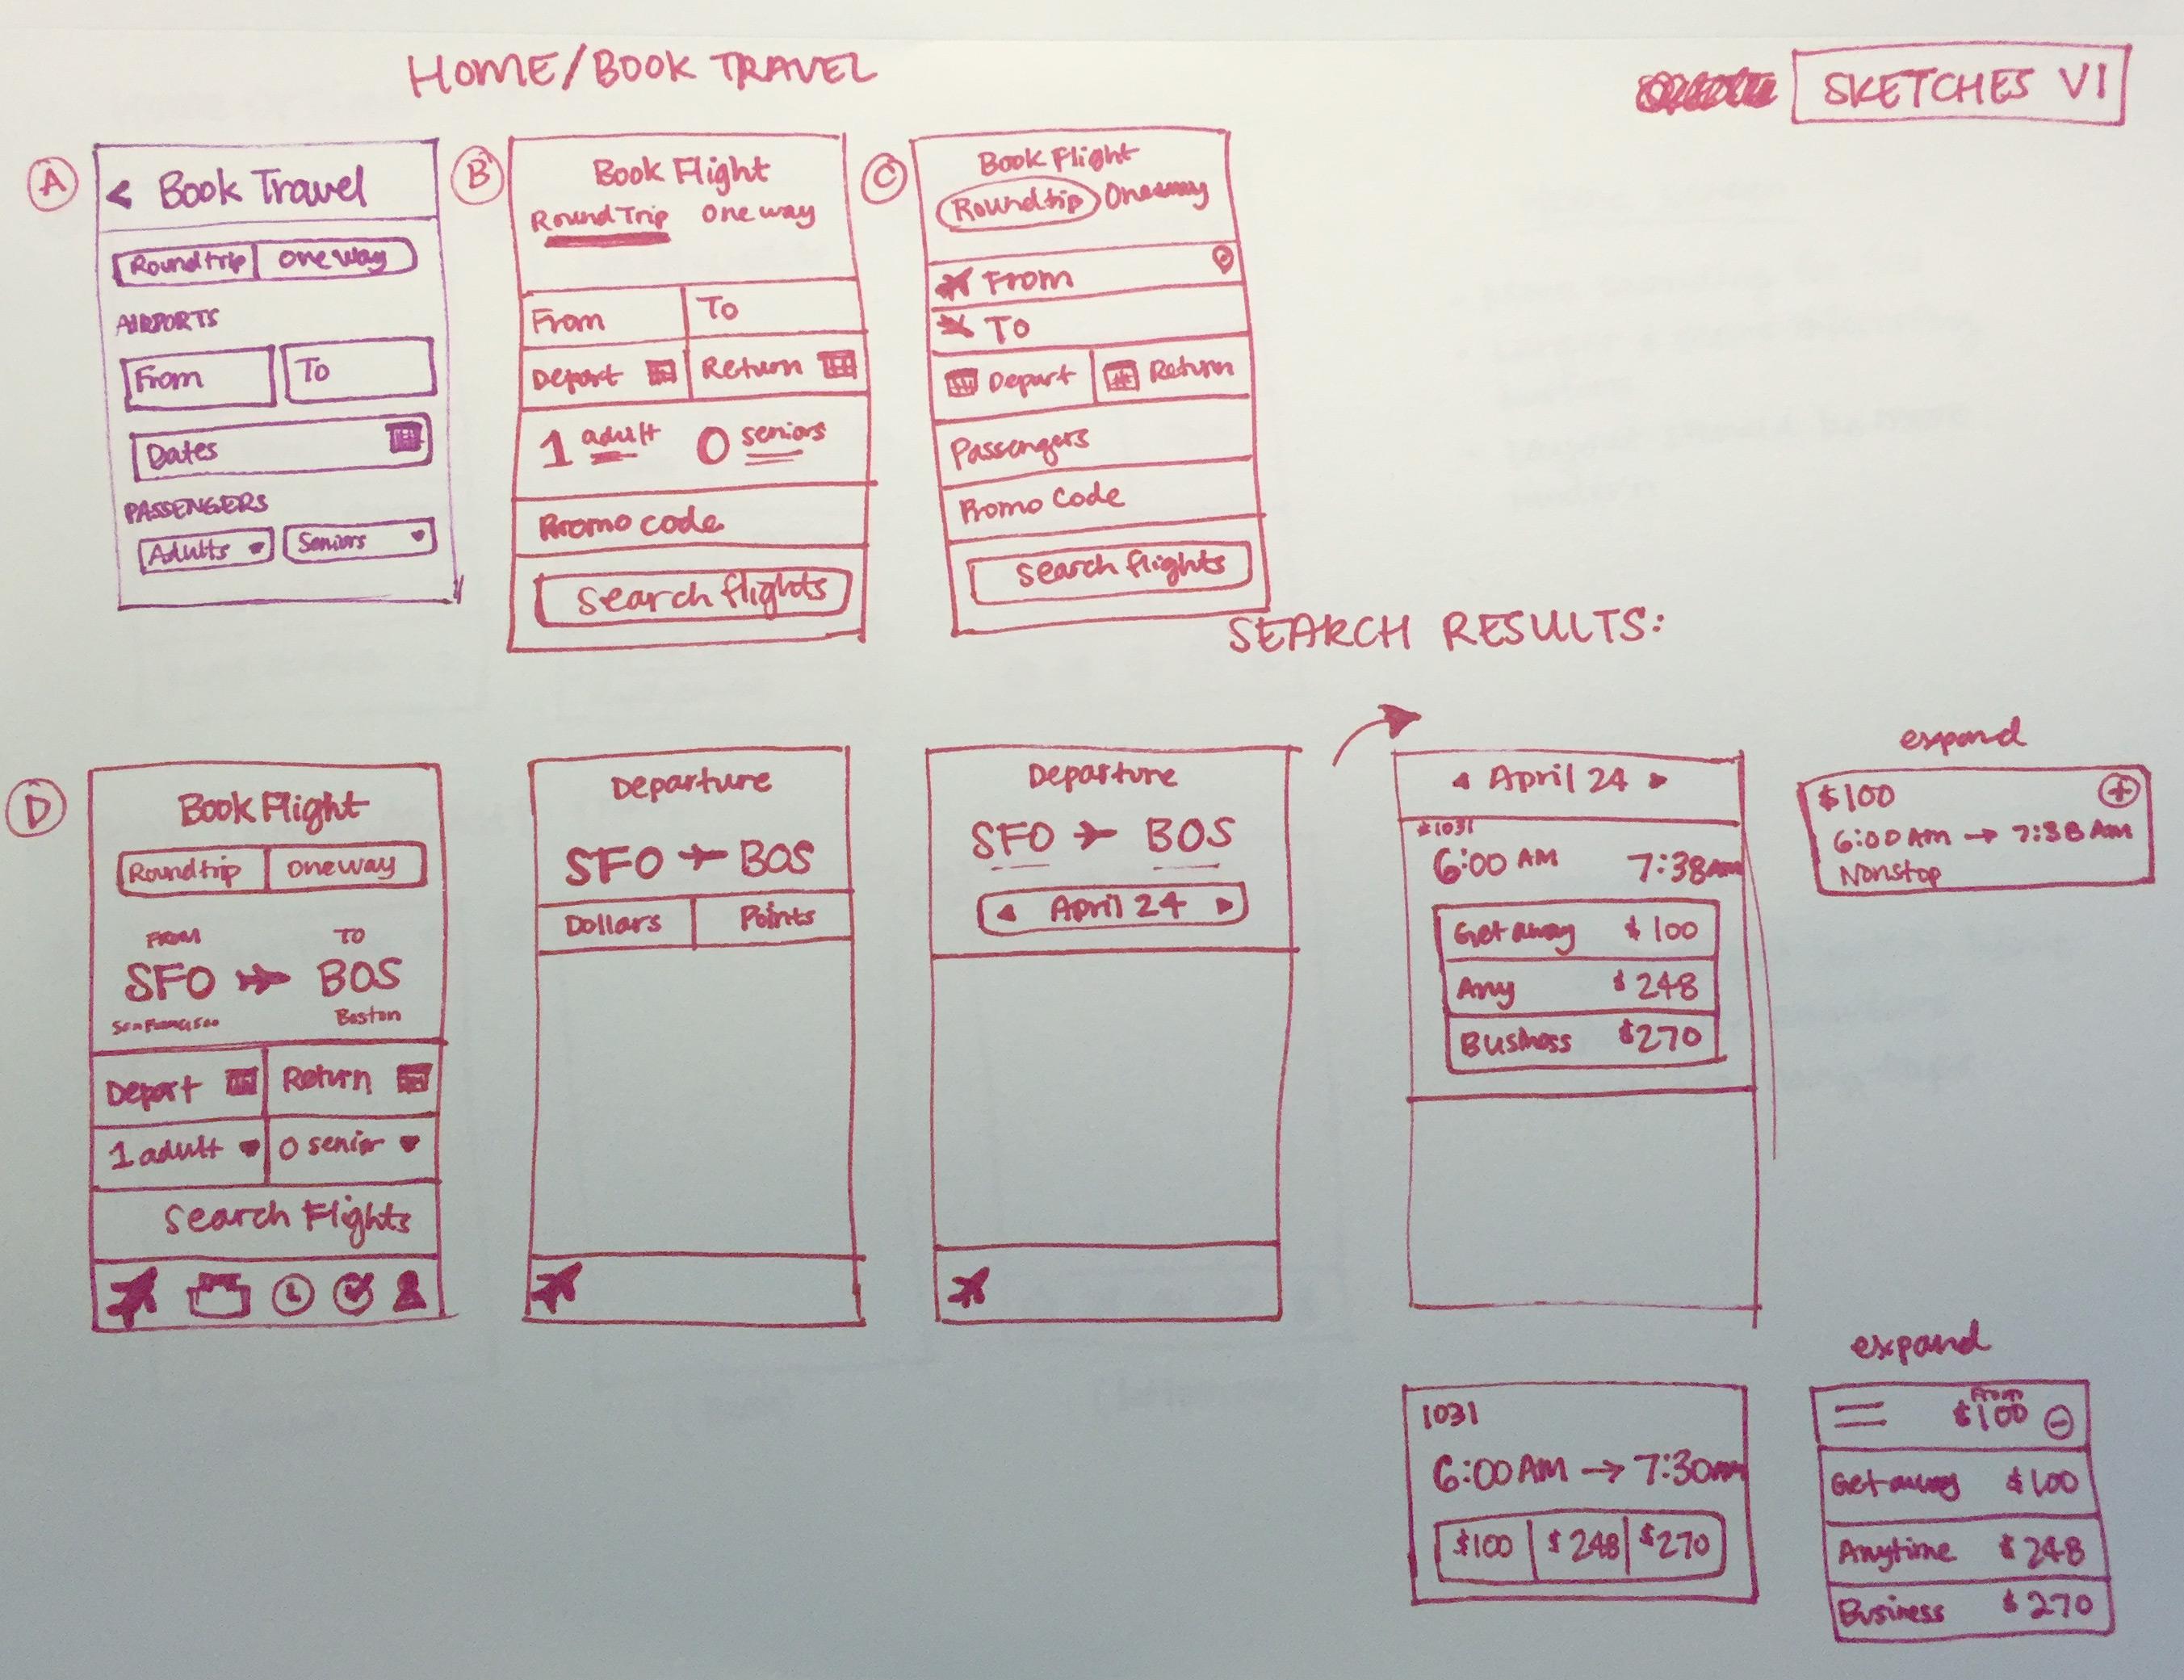 HOME/BOOK TRAVEL
SKETCHES V1
A
< Book Travel
Roundtrip One way
AIRPORTS
From To
Dates
PASSENGERS
Adults Seniors
B
Book Flight
Round Trip One way
From To
Depart Return
1 adult 0 seniors
Promo code
Search flights
C
Book Flight
Roundtrip Oneway
From
To
Depart Return
Passengers
Promo Code
Search flights
SEARCH RESULTS:
D
Book Flight
Roundtrip One way
FROM TO
SFO BOS
San Francisco Boston
Depart Return
1 adult 0 senior
Search Flights
Departure
SFO BOS
Dollars Points
Departure
SFO → BOS
◂ April 24 ▸
◂ April 24 ▸
#1031
6:00 AM 7:38AM
Get away $100
Any $248
Business $270
expand
$100 +
6:00 AM → 7:38 AM
Nonstop
1031
6:00 AM → 7:30AM
$100 $248 $270
expand
From
$100 −
Get away $100
Anytime $248
Business $270